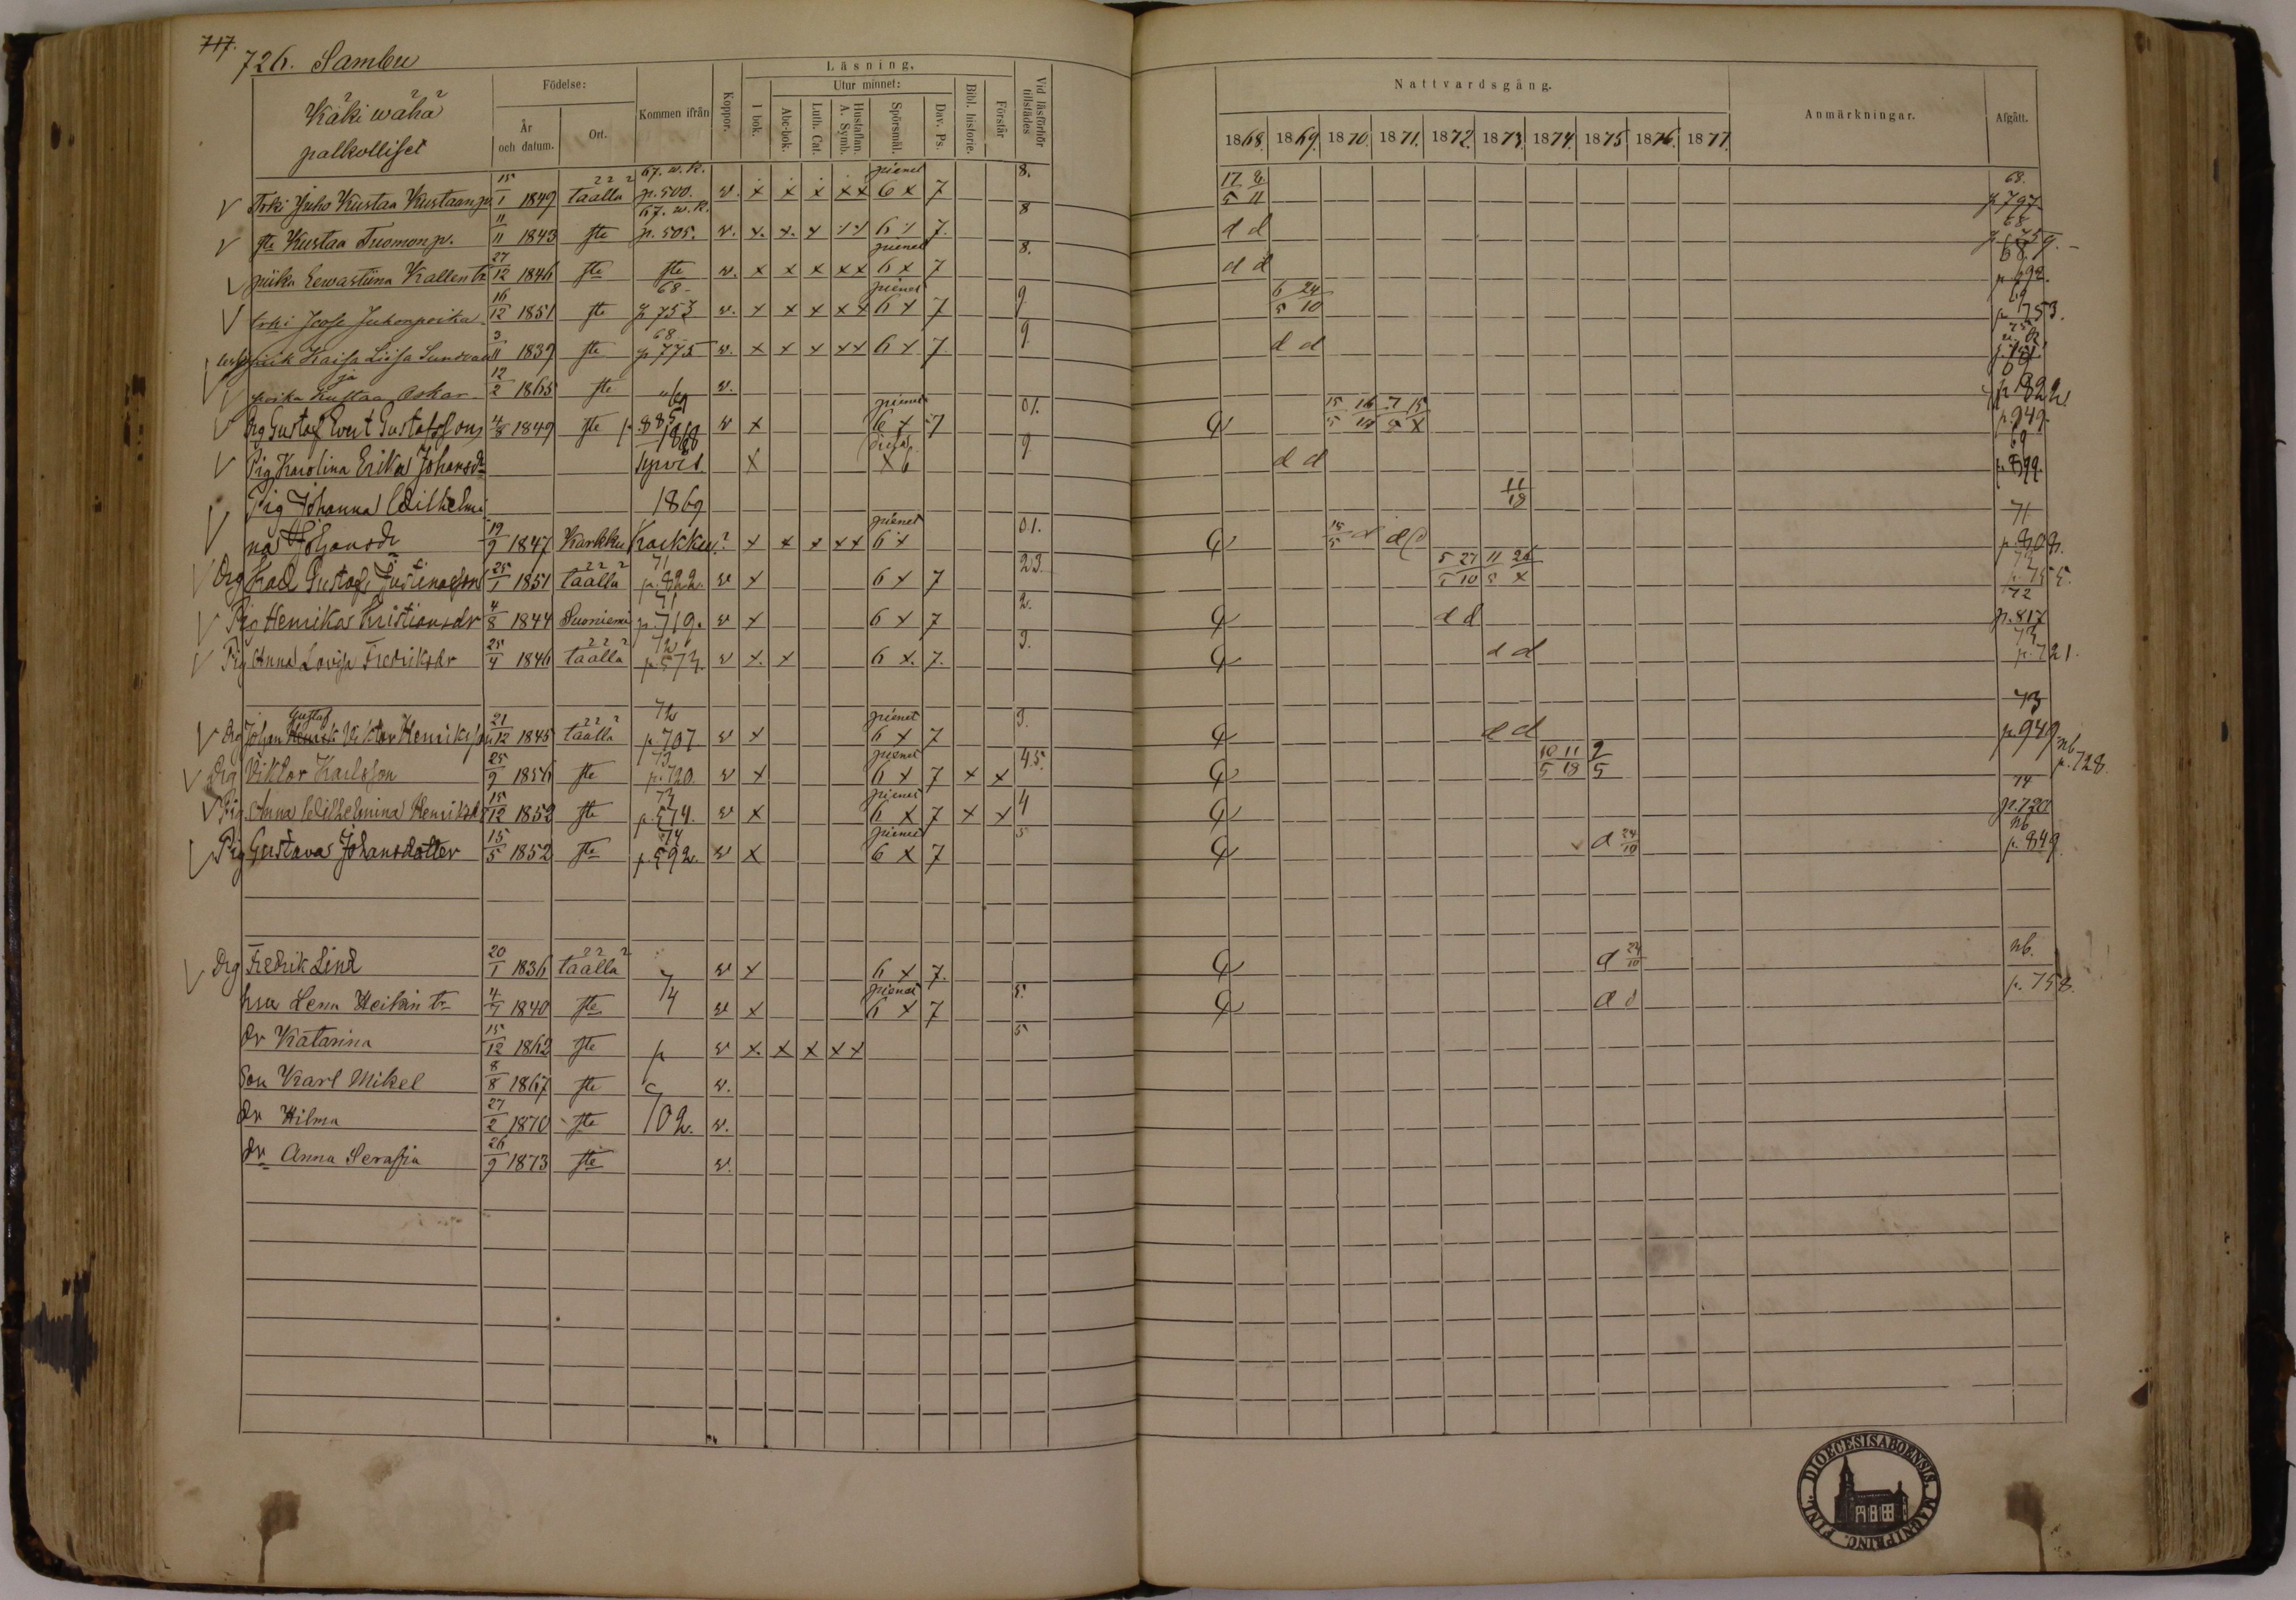 717.
726. Sambu
Käki wähä
palkolliset
Födelse:
År och datum.
Ort.
Kommen ifrån
Koppor.
Läsning.
I bok.
Utur minnet:
Abc-bok.
Luth. Cat.
Hustaflan. A. Symb.
Spörsmål.
Dav. Ps.
Bibl. historie.
Förstår
Vid läsförhör tillstädes
Nattvardsgång.
1868. 1869. 1870. 1871. 1872. 1873. 1874. 1875 1876. 1877.
Anmärkningar.
Afgått.
Trki Juho Kustaa Kustaan p. 15/1 1849 täällä 67. w. k. p. 500. w. x x x x x pienet 6 x 7 8. 17/5 8/11 68. p 797
ste Kustaa Tuomon p. 11/11 1843 ste 67. w. k. p. 505. w. x. x. x x x 6 x 7. 8 d d 68
piika Eewastiina Kallen tr 27/12 1846 ste ste w. x x x x x pienet 6 x 7 8. d d 68.
trki Joose Juhonpoika 16/12 1851 ste 68- p 753 w. x x x x x pienet 6 x 7 9 6/5 24/10 69 p. 753.
piik Kaisa Liisa 3/11 1839 ste 68- p 775 w. x x x x x 6 x 7. 9. d d
ja
poika Kustaa Oskar 12/2 1865 ste w. p. 822.
Drg Gustaf Evert Gustafsson 4/8 1849 ste 69 p. 885 w x pienet 6 x 7 01. 15/5 16/10 p. 949.
Pig Karolina Erika Johansdr 1868 x x 6 9 d d 69 p. 899.
Pig Johanna Wilhelmi 1869 11/18
na Johansdr 19/9 1847 Karkku Karkku ? x x x x x pienet 6 x 01. 15/5 71 p. 808.
Drg Karl Gustaf 25/1 1851 täällä 71 p. 822. w x 6 x 7 23. 5/5 27/10 73 p. 755.
Pig Henrika Kristiansdr 4/8 1844 Suoniemi 71 p. 719. w x 6 x 7 2. d d 72 p. 817
Pig Anna Lovisa Fredriksdr 25/4 1846 täällä 72 p. 573. w x. x 6 x. 7. 3. d d 73 p. 721.
Drg Johan Gustaf Viktor Henriksson 21/12 1845 täällä 72 p 707 w x pienet 6 x 7 3. d d 73 p. 949
Drg Viktor Karlsson 25/9 1856 ste 73 p. 720. w x pienet 6 x 7 x x 4.5. 10/5 11/18 9/5 nb p. 728.
Pig. Anna Wilhelmina Henriksdr 15/12 1852 ste 73 p. 574. w x pienet 6 x 7 x x 4 74 p. 720
Pig Gustava Johansdotter 15/5 1852 ste 74 p. 592. w x pienet 6 x 7 5 d 24/10 nb p. 849
Drg Fredrik Lind 20/1 1836 täällä w x 6 x 7. d 24/10 nb.
hru Lena Heikin tr 4/7 1840 ste 74 w x pienet 6 x 7 5. d d p. 758.
dr Katarina 15/12 1862 ste p w x. x x x x 5
Son Karl Mikel 8/8 1867 ste w.
dr Hilma 27/2 1870 ste 702. w.
dr Anna Serafia 26/9 1873 ste w.
FINL. DIOECESIS ABOENSIS. MAGNI PRINC.